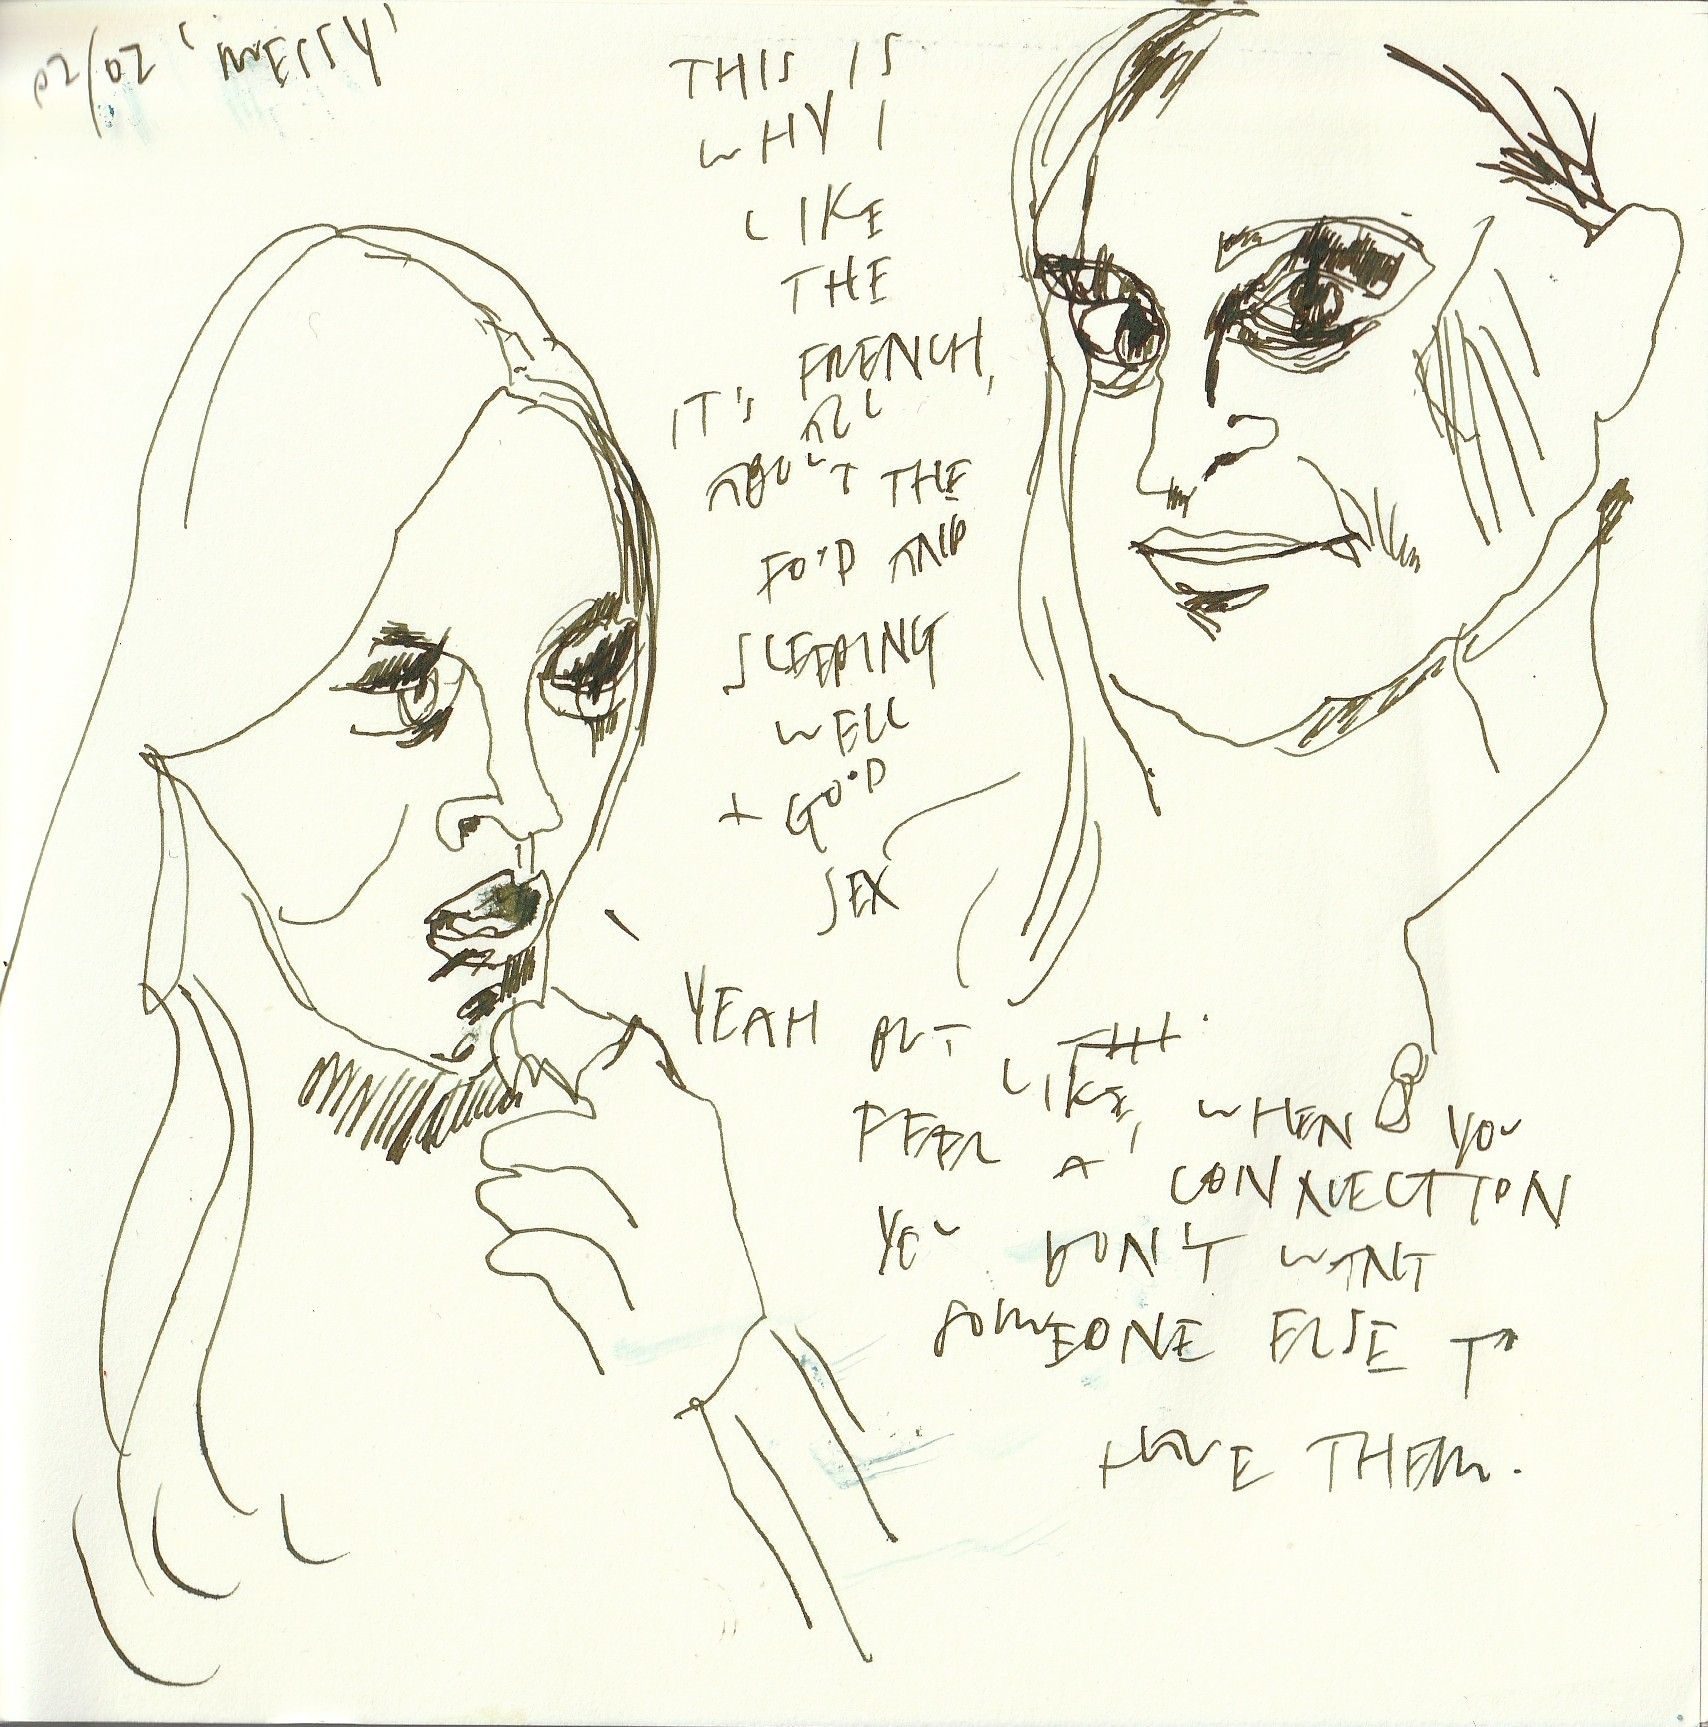 02/02 'MESSY'
THIS IS
WHY I
LIKE
THE
FRENCH,
IT'S ALL
ABOUT THE
FOOD AND
SLEEPING
WELL
+ GOOD
SEX
YEAH BUT
LIKE, WHEN YOU
FEEL A CONNECTION
YOU DON'T WANT
SOMEONE ELSE TO
HAVE THEM.